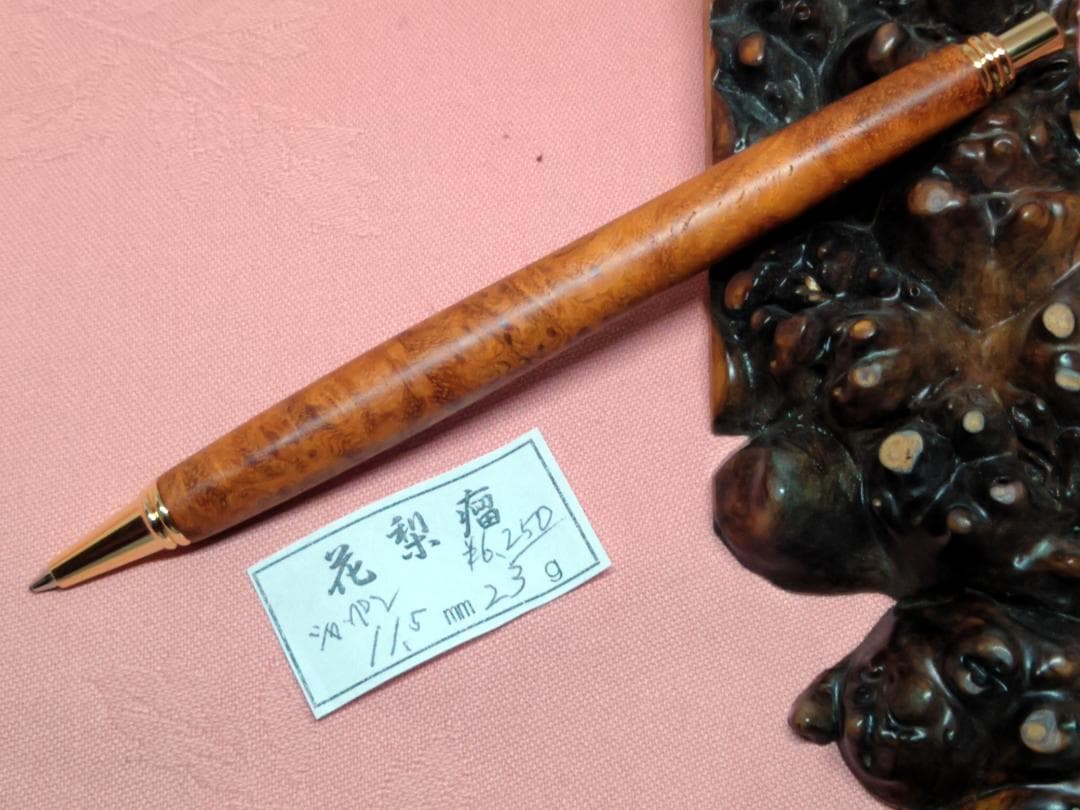 花梨瘤
¥6,250
シャープ
11.5 mm 23 g